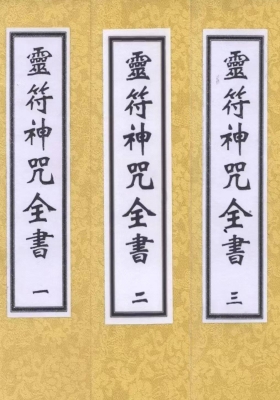 靈符神咒全書 一
靈符神咒全書 二
靈符神咒全書 三